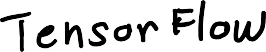 Tensor Flow